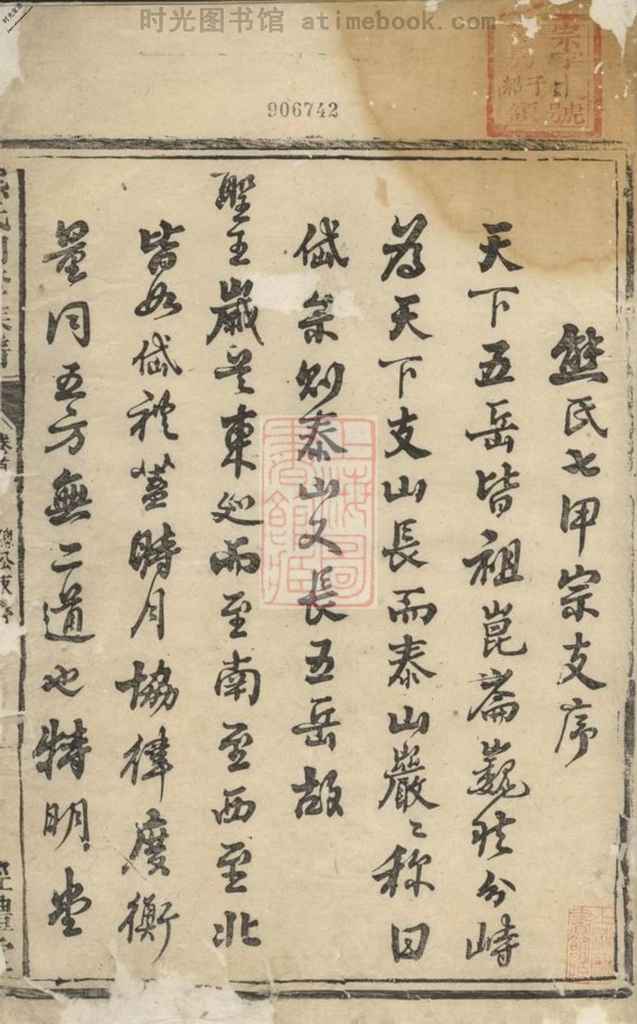 时光图书馆 atimebook.com
906742
熊氏七甲宗支序
天下五岳皆祖崑崙巍然分峙
為天下支山長而泰山巖〻称曰
岱宗則泰山又長五岳故
聖王歲巡東処而至南至西至北
皆如岱礼蓋時月協律度衡
量同五方無二道也特明堂
上海圖書館藏